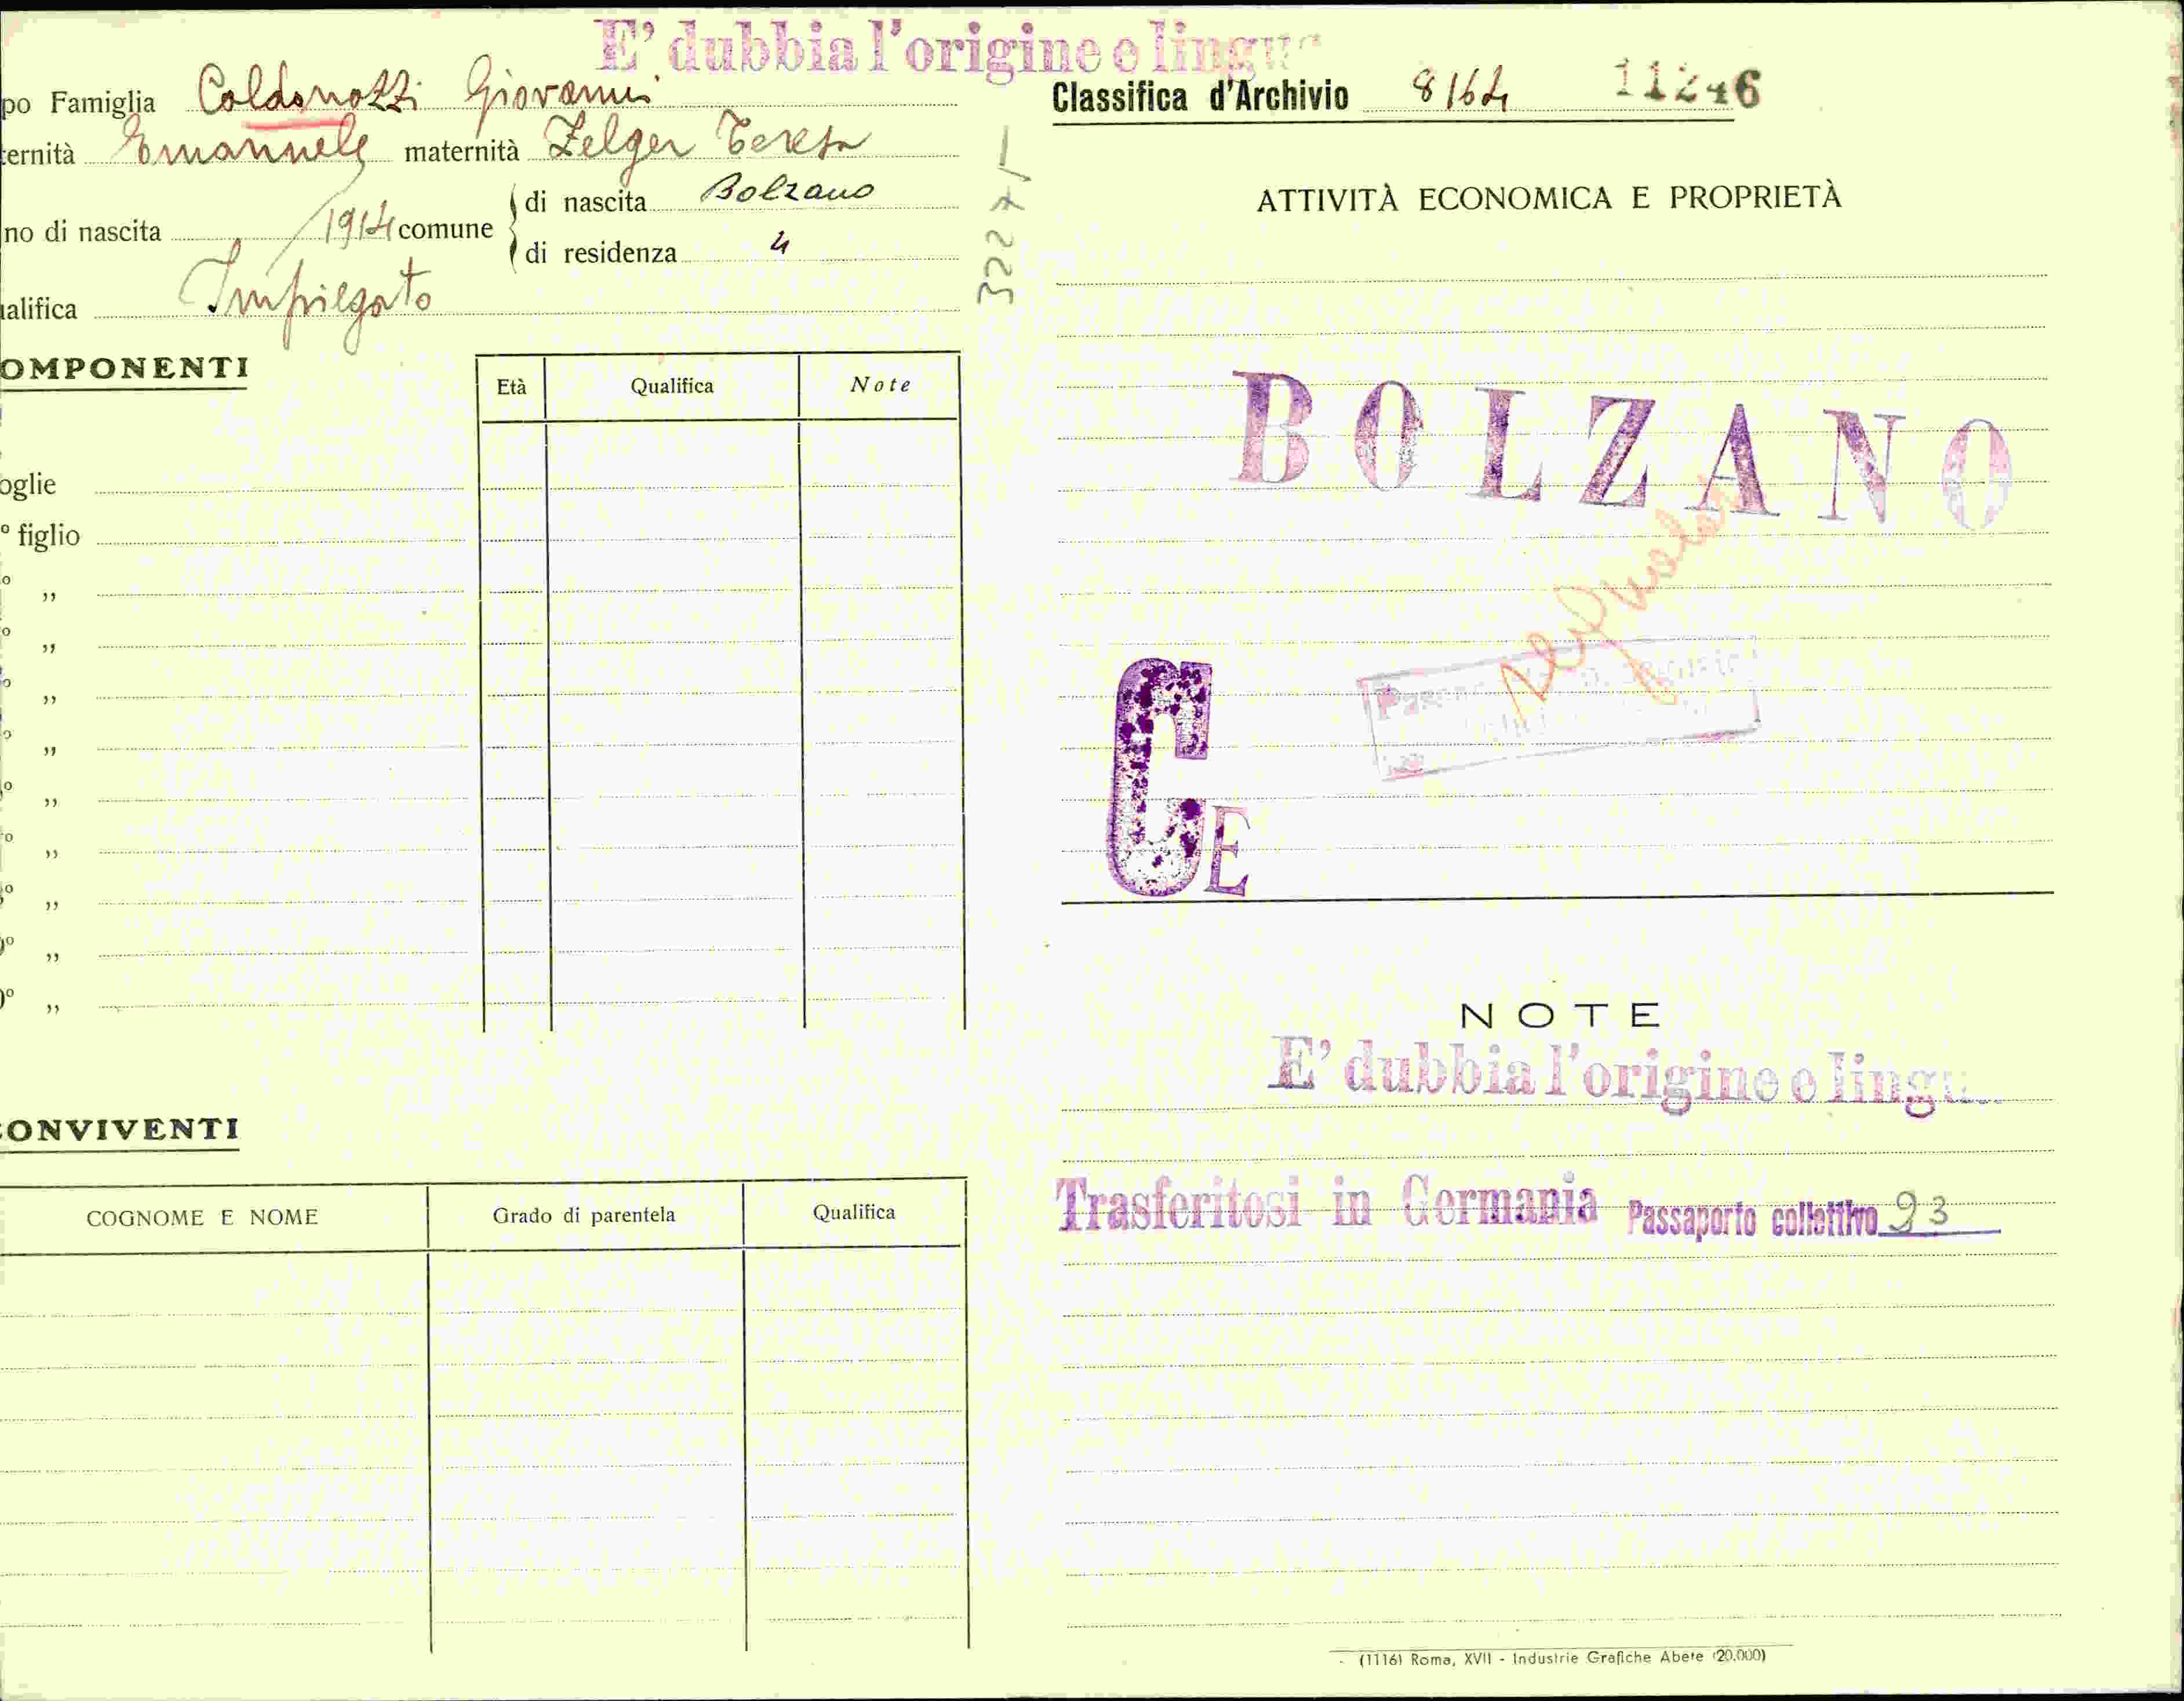 E' dubbia l'origine o lingu
po Famiglia Caldonazzi Giovanni
ternità Emanuele maternità Zelger Teresa
no di nascita 1914 comune di nascita Bolzano
di residenza 4
alifica Impiegato
OMPONENTI
Età Qualifica Note
oglie
° figlio
° „
° „
° „
° „
° „
° „
° „
° „
° „
CONVIVENTI
COGNOME E NOME Grado di parentela Qualifica
32271
Classifica d'Archivio 8164 11246
ATTIVITÀ ECONOMICA E PROPRIETÀ
BOLZANO
CE
NOTE
E' dubbia l'origine o lingu
Trasferitosi in Germania Passaporto collettivo 93
(1116) Roma, XVII - Industrie Grafiche Abete (20.000)